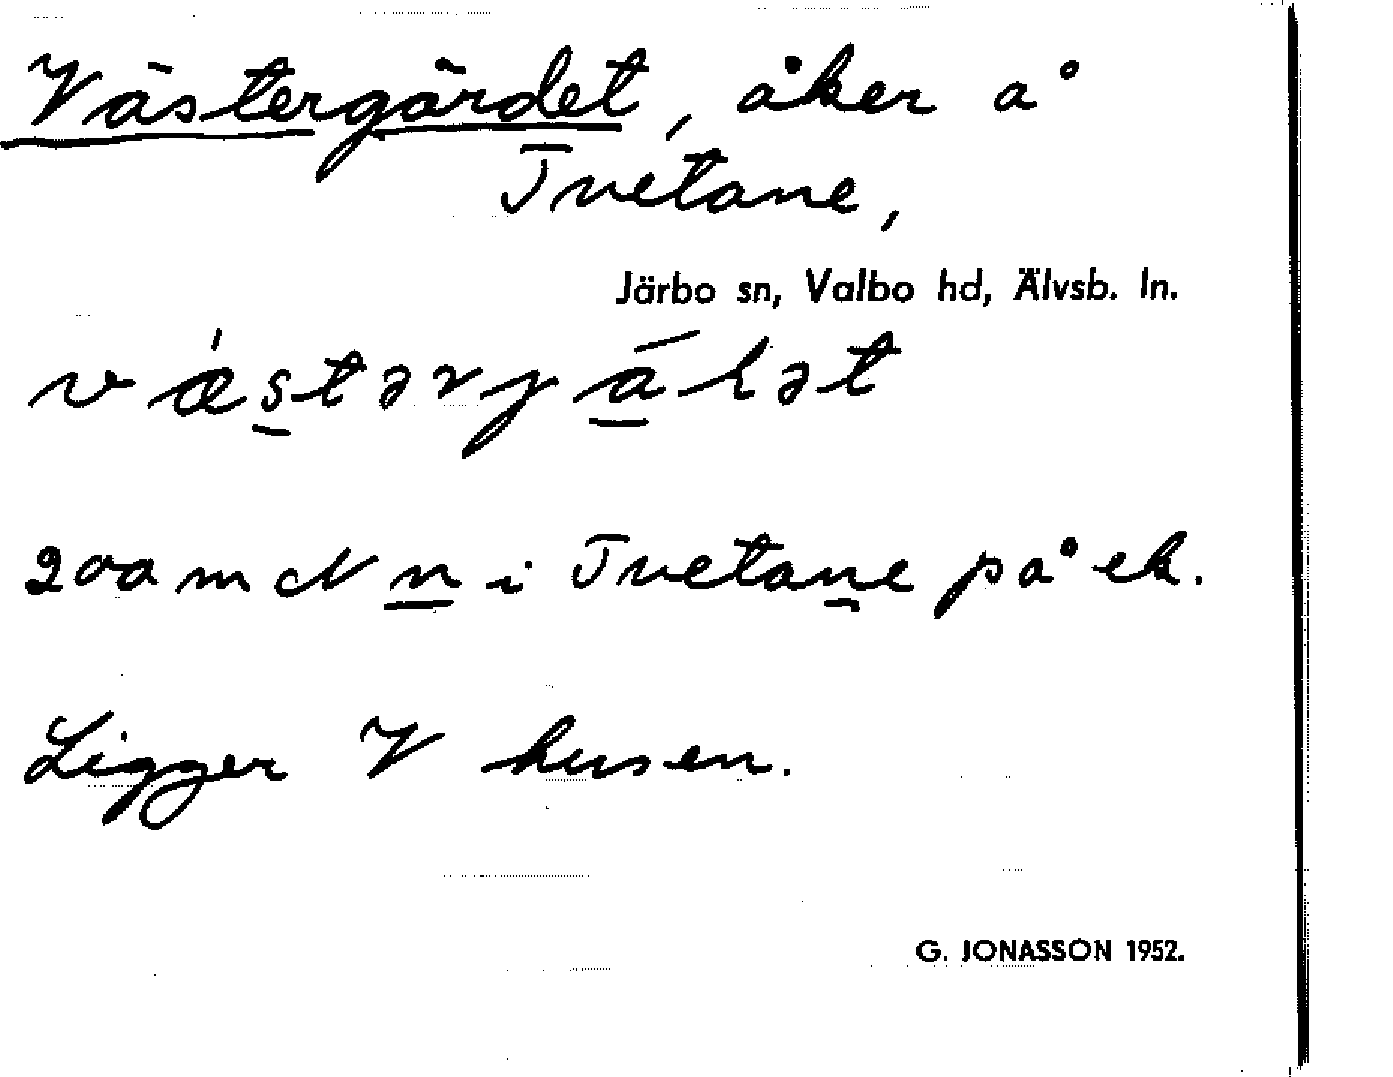 Västergärdet, åker å
Tvetane,
Järbo sn, Valbo hd, Älvsb. ln.
200 m N n i Tvetane på ek.
Ligger V husen.
G. JONASSON 1952.